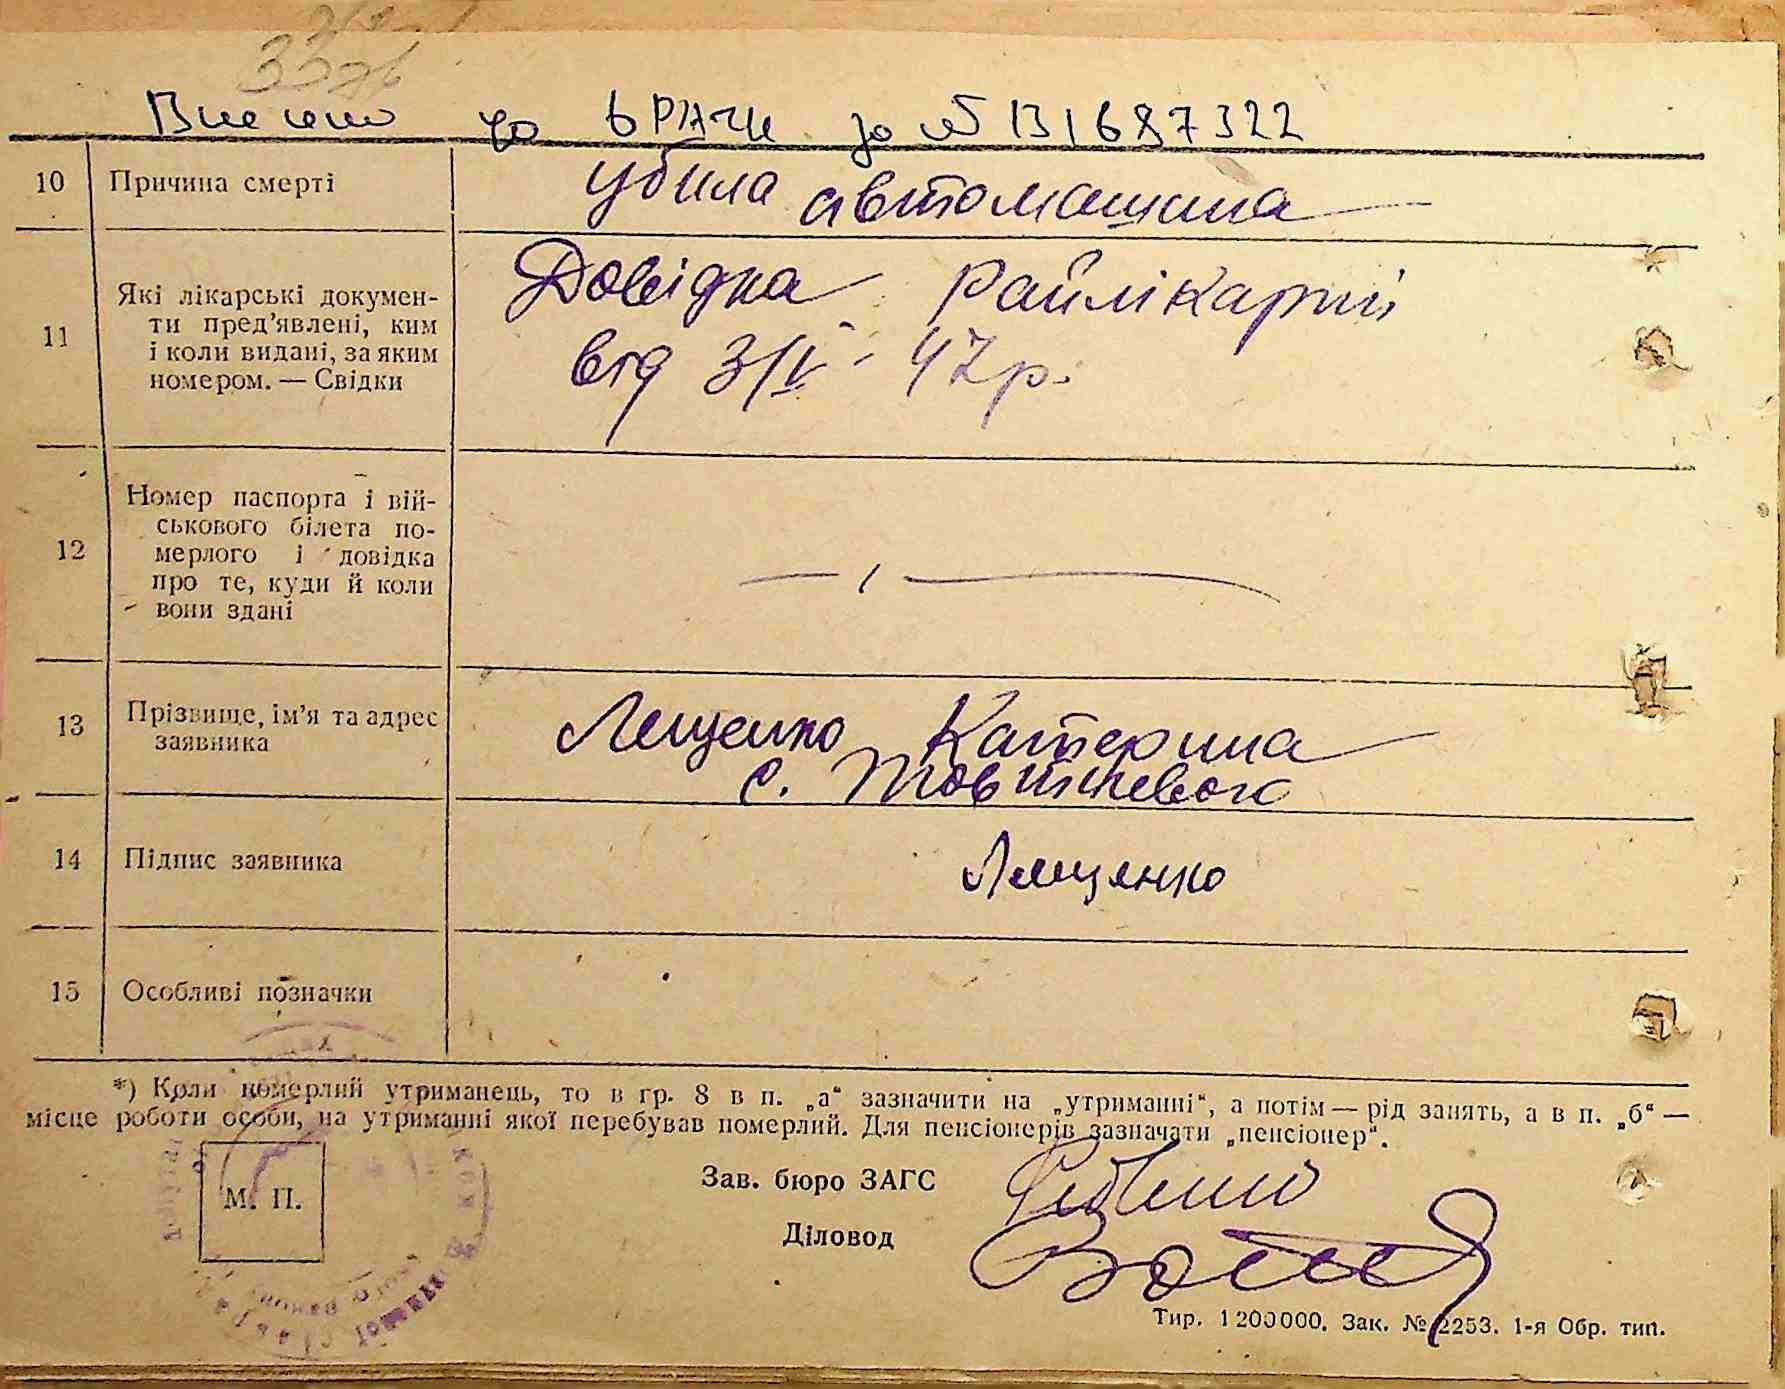 Внесено до ЬРАЧи за № 131687322
10 Причина смерті
убила автомашина
11 Які лікарські докумен-
ти пред'явлені, ким
і коли видані, за яким
номером. — Свідки
Довідка Райлікарні
від 3/IV - 47р.
12 Номер паспорта і вій-
ськового білета по-
мерлого і довідка
про те, куди й коли
вони здані
13 Прізвище, ім'я та адрес
заявника
Лещенко Катерина
с.
14 Підпис заявника
Лещенко
15 Особливі позначки
*) Коли померлий утриманець, то в гр. 8 в п. „а“ зазначити на „утриманні“, а потім — рід занять, а в п. „б“ —
місце роботи особи, на утриманні якої перебував померлий. Для пенсіонерів зазначати „пенсіонер“.
М. П.
Зав. бюро ЗАГС
Діловод
Тир. 1200000. Зак. № 2253. 1-я Обр. тип.